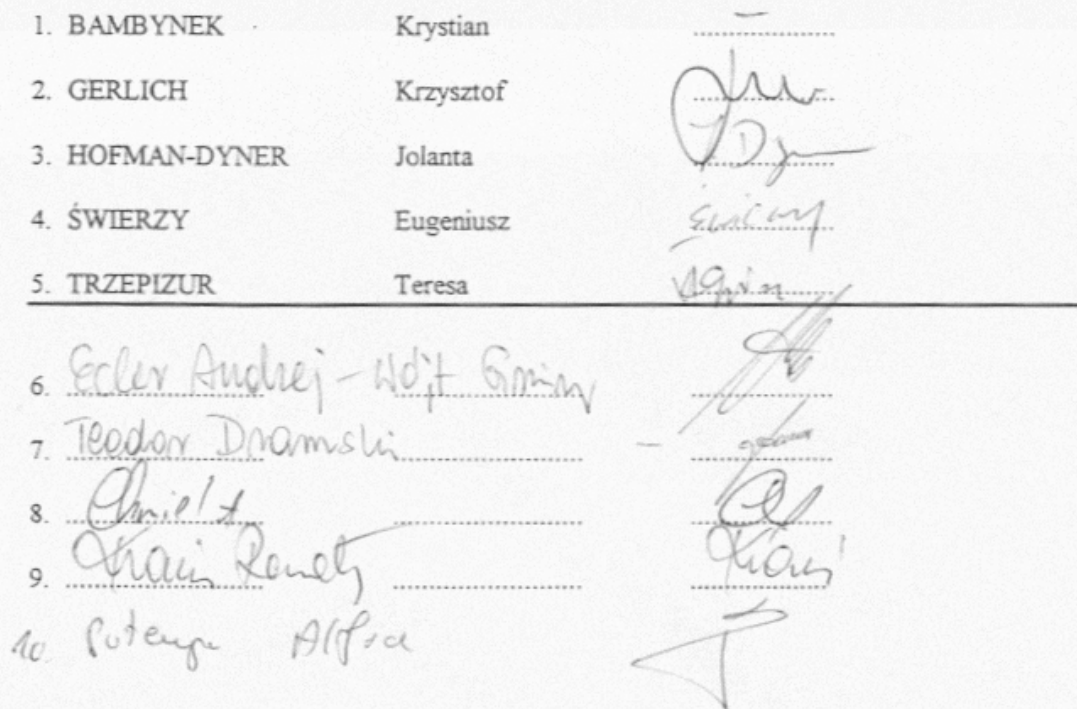 1. BAMBYNEK Krystian –
2. GERLICH Krzysztof
3. HOFMAN-DYNER Jolanta JDy
4. ŚWIERZY Eugeniusz Świerzy
5. TRZEPIZUR Teresa
6. Ecler Andrzej - Wójt Gminy
7. Teodor Dramski –
8. Chmiel A
9. Renata
10. Potempa Alfred